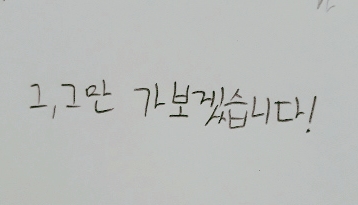 그,그만 가보겠습니다!